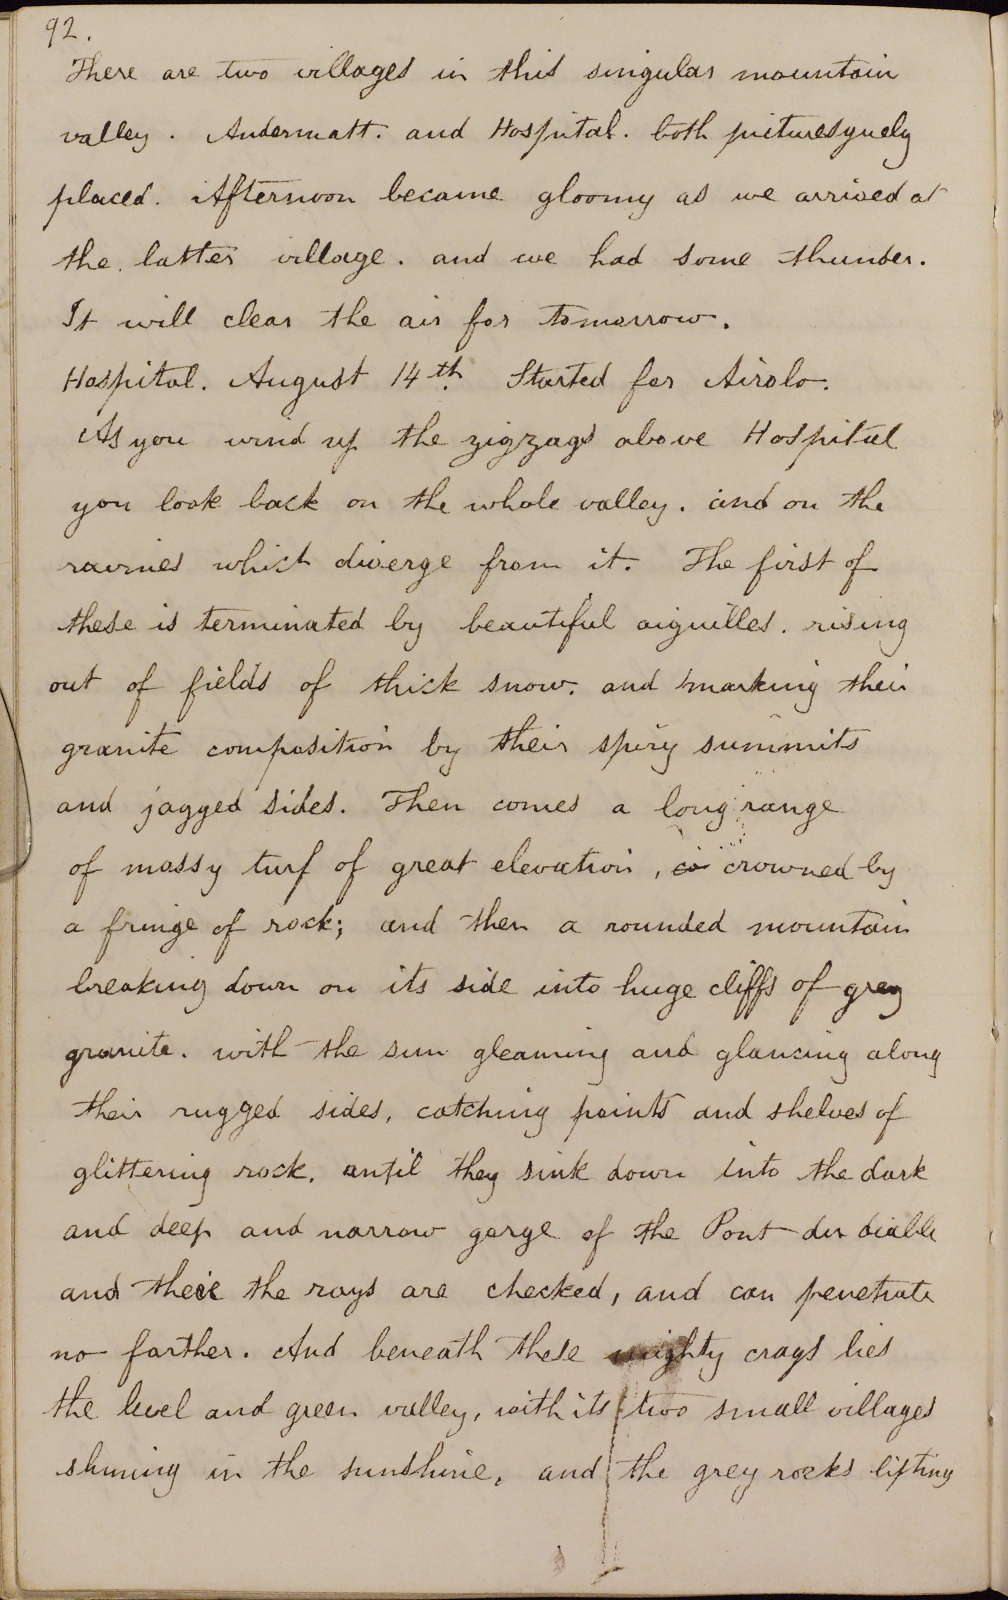 92.
There are two villages in this singular mountain
valley. Andermatt. and Hospital. both picturesquely
placed. Afternoon became gloomy as we arrived at
the latter village. and we had some thunder.
It will clear the air for tomorrow.
Hospital. August 14th. Started for Airolo.
As you wind up the zigzags above Hospital
you look back on the whole valley. and on the
ravines which diverge from it. The first of
these is terminated by beautiful aiguilles. rising
out of fields of thick snow. and marking their
granite composition by their spiry summits
and jagged sides. Then comes a long range
of mossy turf of great elevation, crowned by
a fringe of rock; and then a rounded mountain
breaking down on its side into huge cliffs of grey
granite. with the sun gleaming and glancing along
their rugged sides, catching points and shelves of
glittering rock. until they sink down into the dark
and deep and narrow gorge of the Pont du diable
and there the rays are checked, and can penetrate
no farther. And beneath these mighty crags lies
the level and green valley, with its two small villages
shining in the sunshine, and the grey rocks lifting